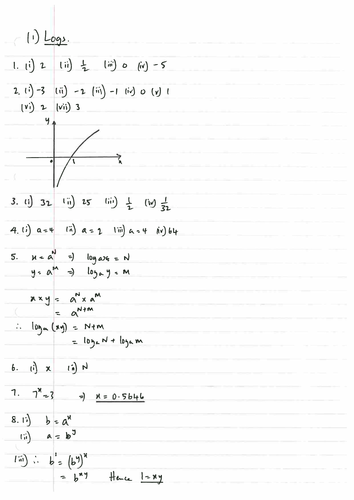 (1) Logs.
1. (i) 2 (ii) 1/2 (iii) 0 (iv) -5
2. (i) -3 (ii) -2 (iii) -1 (iv) 0 (v) 1
(vi) 2 (vii) 3
y
0 1 x
3. (i) 32 (ii) 25 (iii) 1/2 (iv) 1/32
4. (i) a=4 (ii) a=2 (iii) a=4 (iv) 64
5. x = a^N ⇒ log_a x = N
y = a^M ⇒ log_a y = M
x × y = a^N × a^M
= a^(N+M)
∴ log_a (xy) = N+M
= log_a N + log_a M
6. (i) x (ii) N
7. 7^x = 3 ⇒ x = 0.5646
8. (i) b = a^x
(ii) a = b^y
(iii) ∴ b^1 = (b^y)^x
= b^xy Hence 1 = xy